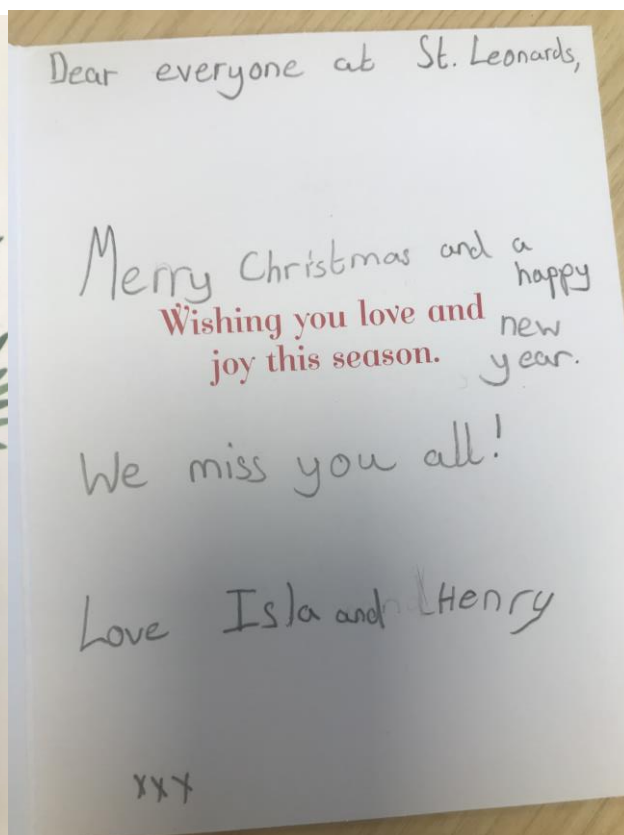 Dear everyone at St. Leonards,
Merry Christmas and a
happy
new
year.
Wishing you love and
joy this season.
We miss you all!
Love Isla and Henry
xxx